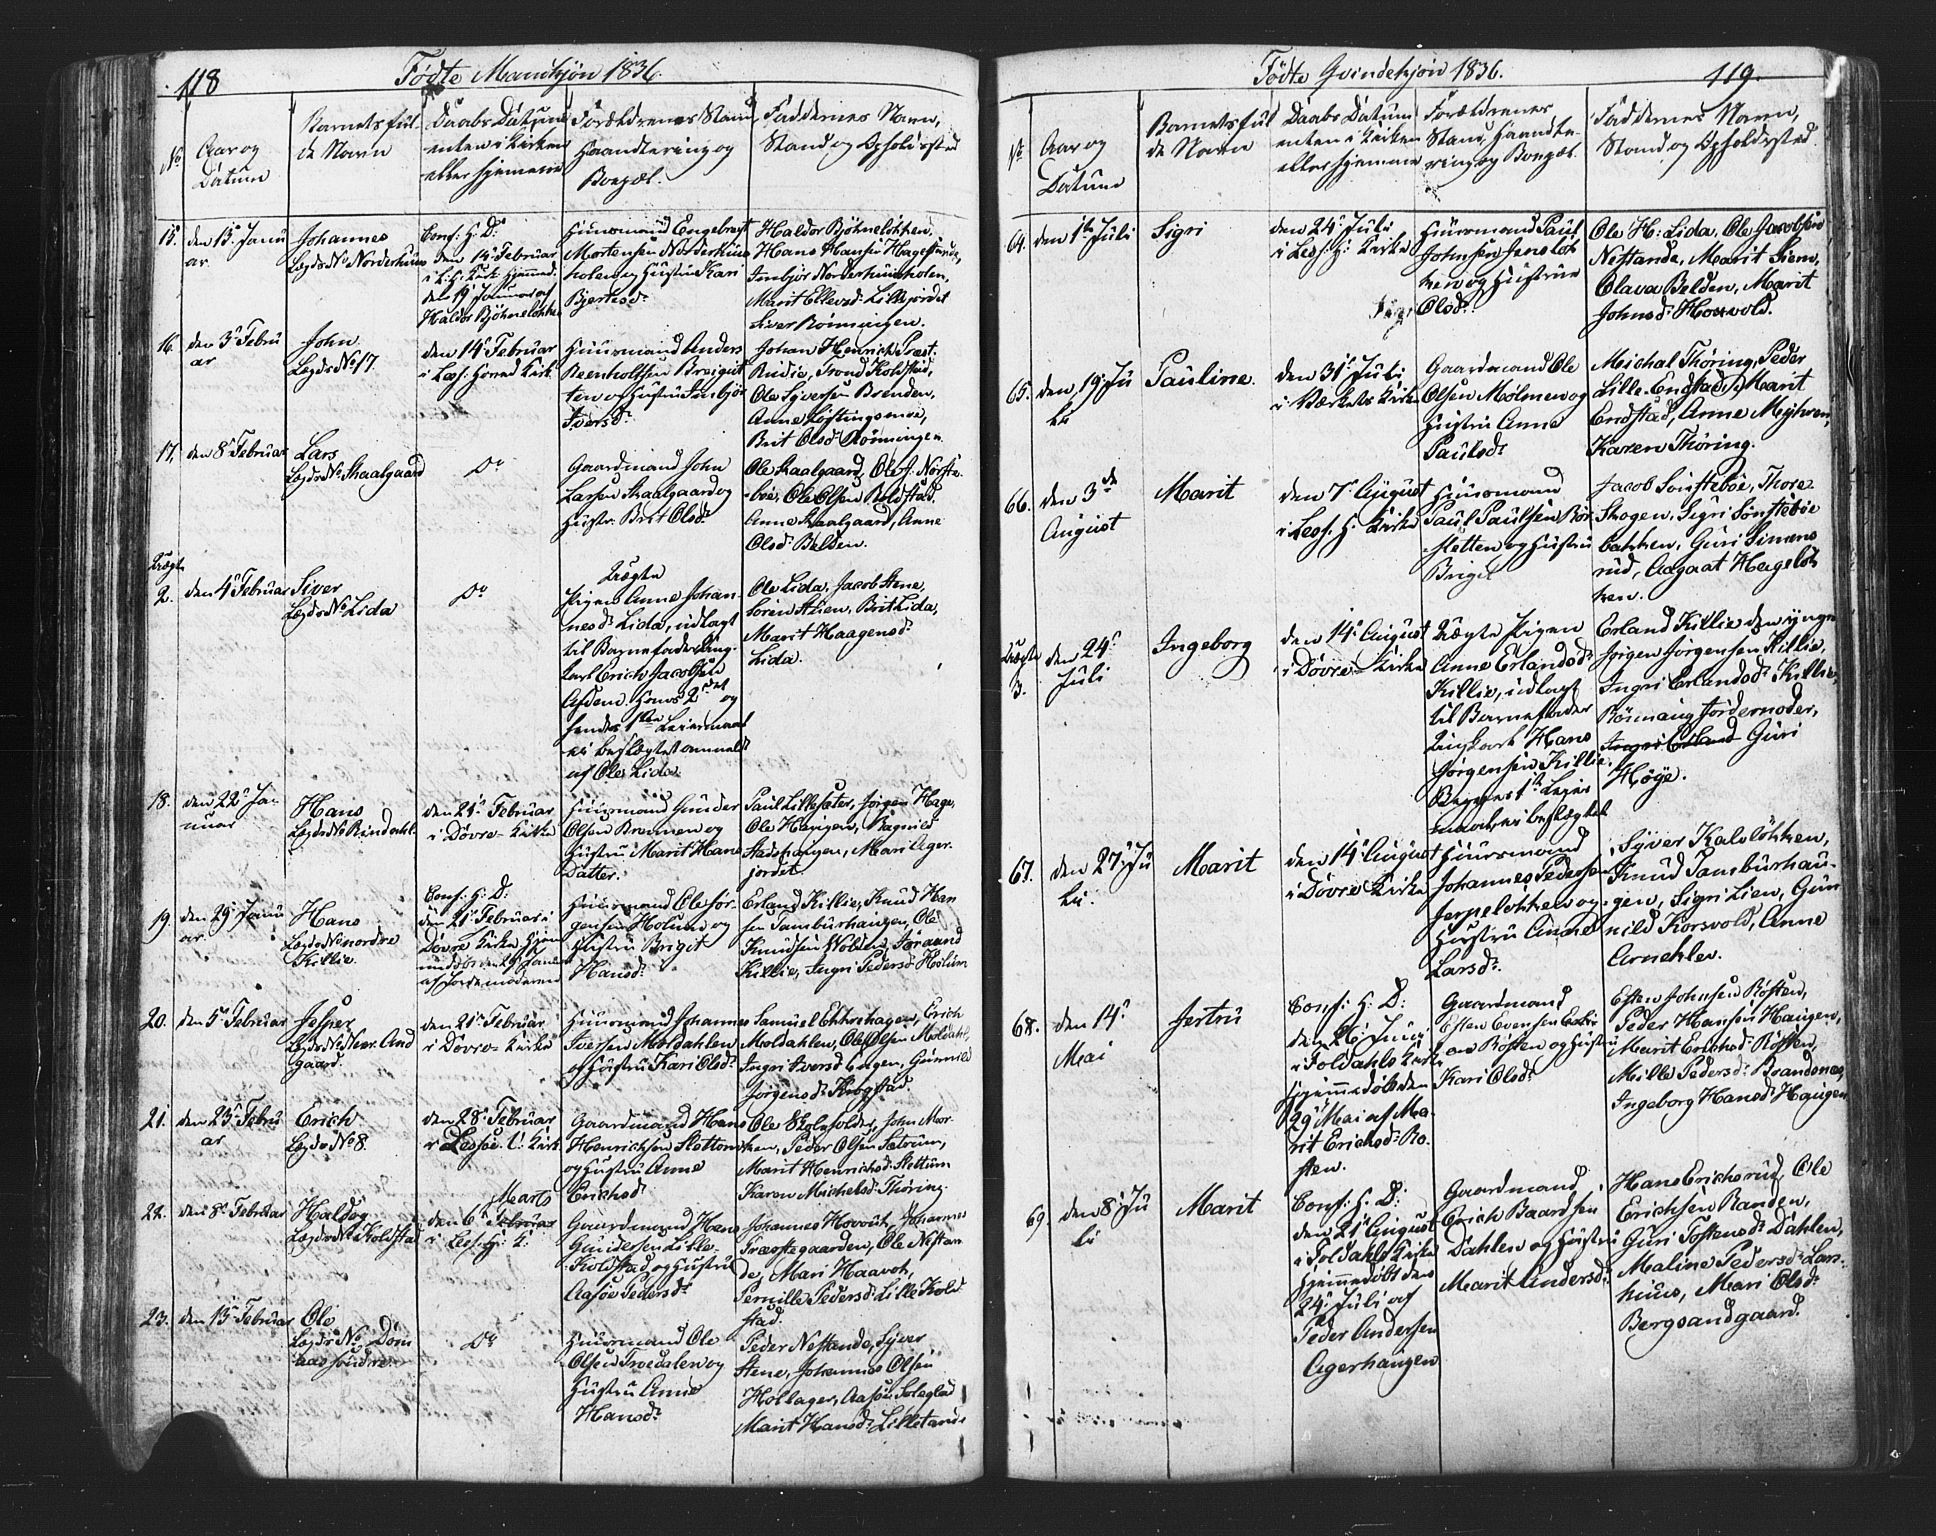 118
Fødte Mandkjön 1836.
No
Aar og
Datum
Barnets ful
de Navn
Daabs Datum
enten i Kirken
eller hjemme
Forældrenes Stand
Haandtering og
Bopæl.
Faddernes Navn,
Stand og Opholdssted
15.
den 15 Janu
ar
Johannes
Lægds No Norderhuus
Conf: H: D:
den 14 Februar
i L: H: Kirke hjemmed:
den 19 Januar af
Haldor Björneløkken
Huusmand Engebret
Mortensen Norderhuus
holen og Hustru Kari
Bjertesd:
Haldor Björneløkken,
Hans Hansen Hagestuede,
Imbjör Norderhuusholen,
Marit Ellevsd: Lillejordet
Siver Rønningen.
16.
den 5 Febru
ar
John
Lægds No 17.
den 14 Februar
i Lesj. Hoved Kirk.
Huusmand Anders
Beenholtsen Breigut
ten og Hustru Imbjör
Iversd:
Johan Henrich Præst.
Rudie, Trond Koldstad,
Ole Syversen Brenden,
Anne Løftingsmoe,
Brit Olsd: Rønningen
17.
den 8 Februar
Lars
Lægds No Skaalgaard
Do
Gaardmand John
Larsen Skaalgaard og
Hustr. Brit Olsd:
Ole Skaalgaard, Ole J. Norste-
böe, Ole Olsen Koldstad.
Anne Skaalgaard, Anne
Olsd: Belden.
Uægte
2.
den 4 Februar
Siver
Lægds No Lida
Do
Uægte
Pigen Anne Johan-
nesd: Lida, udlagt
til Barnefader Ung-
karl Erich Jacobsen
Asden. Hans 2det og
hendes 1ste Leiermaal
ei beslægtet anmeldt
af Ole Lida
Ole Lida, Jacob Stene,
Soren Stien, Brit Lida,
Marit Haagensd:
Lida.
18.
den 22 Ja-
nuar
Hans
Lægds No Rindahl.
den 21 Februar
i Dovre Kirke
Huusmand Gunder
Olsen Brennen og
Hustru Marit Hans
Datter.
Paul Lillesæter, Jörgen Hage,
Ole Haugen, Ragnild
Stadshaugen, Mari Ager-
jordet
19.
den 29 Janu
ar.
Hans
Lægds No nordre
Killie.
Conf: H: D:
den 21 Februar i
Dovre Kirke Hjem
medöbt den 29 Janu
af Jordemoderen
Huusmand Ole Jör-
gensen Holum og
Hustru Brigit
Hansd:
Erland Killie, Knud Han
sen Tamburhaugen, Ole
Knudsen Wolden, Jöraand
Killie, Ingri Pedersd: Holum
20.
den 5 Februar
Jesper
Lægds No Nerr. And
gaard.
den 21 Februar
i Dovre Kirke
Huusmand Johannes
Iversen Moldahlen
og Hustru Kari Olsd:
Samuel Ekkrehagen, Erich
Moldahlen, Ole Olsen Moldahl,
Ingri Iversd: Engen, Gunnild
Jörgensd: Krogstad.
21.
den 23 Febru
ar
Erich
Lægds No 8.
den 28 Februar
i Lessöe L. Kirk
Gaardmand Hans
Henrichsen Slottom
og Hustru Anne
Erichsd:
Ole Skolesholder, John Mor-
ken, Peder Olsen Sætrum,
Marit Henrichsd: Slettum
Karen Michelsd: Thøring.
22.
den 8 Februar
Haldog
Lægds No Koldstad
Marts
den 6 Februar
i Lesj. H: K.
Gaardmand Hans
Gundersen Lille
Koldstad og Hustru
Aasöe Pedersd:
Johannes Hovout, Johannes
Præstegaarden, Ole Nestan
de, Mari Haavot,
Pernille Pedersd: Lille Kold
stad.
23.
den 13 Februar
Ole
Lægds No Dom
aas söndre
Do
Huusmand Ole
Olsen Troedalen og
Hustru Anne
Hansd:
Peder Nestande, Syver
Stene, Johannes Olsen
Holtager, Aasöe Soleglad
Marit Hansd: Lillestande
Fødte Qvindekjön 1836.
119.
No
Aar og
Datum
Barnets ful
de Navn
Daabs Datum
enten i Kirken
eller hjemme
Forældrenes
Stand, Haandte-
ring og Bopæl.
Faddernes Navn,
Stand og Opholdssted.
64.
den 1te Juli
Sigri
den 24 Juli
i Lesj. H: Kirke
Huusmand Paul
Johnsen Jensløk
ken og Hustrue
Olsd:
Ole H: Lida, Ole Jacobsen
Nestande, Marit Siem,
Olava Belden, Marit
Johnsd: Horvold.
65.
den 19 Ju
li
Pauline.
den 31 Juli
i Værkets Kirke
Gaardmand Ole
Olsen Mølmen og
Hustru Anne
Paulsd:
Michal Thøring, Peder
Lille Endstad, Marit
Endstad, Anne Myhren,
Karen Thøring.
66.
den 3de
August
Marit
den 7 August
i Lesj. H: Kirke
Huusmand
Paul Paulsen Rör
sletten og Hustru
Brigit
Jacob Sönsteböe, Thore
Skogen, Sigri Sönsteböe
bakken, Guri Simens
rud, Aagaat Hageløk
ken.
Uægte
3.
den 24
Juli
Ingeborg
den 14 August
i Dovre Kirke
Uægte Pigen
Anne Erlandsd:
Killie, udlagt
til Barnefader
Ungkarl Hans
Jörgensen Killie.
Begges 1te Leier
maal, ei beslægtet
Erland Killie den yngre
Jörgen Jörgensen Killie,
Ingri Erlandsd: Killie,
Jordemoder,
Ingri Erland Guri
Höye.
67.
den 27 Ju
li.
Marit
den 14 August
i Dovre Kirke
Huusmand
Johannes Pedersen
Jerpeløkken og
Hustru Anne
Larsd:
Syver Kaleløkken,
Knud Tamburhau-
gen, Sigri Lien, Gun
nild Korsvold, Anne
Arneklev.
68.
den 14
Mai
Jertru
Conf: H: D:
den 26 Juni
i Foldahls Kirke
hjemmedöbt den
29 Mai af Ma-
rit Erichsd: Ro-
sten.
Gaardmand
Esten Evensen
Rosten og Hustru
Kari Olsd:
Esten Johnsen Rosten,
Peder Hansen Haugen,
Marit Erichsd: Rosten,
Mille Pedersd: Brandsnes,
Ingeborg Hansd: Haugen
69.
den 8 Ju
li
Marit
Conf: H: D:
den 21 August
i Foldahls Kirke
Hjemmedöbt den
24 Juli af
Peder Andersen
Agerhaugen
Gaardmand
Erich Baardsen
Dahlen og Hustru
Marit Andersd:
Hans Erichsrud, Ole
Erichsen Randen,
Guri Tostensd: Dahlen,
Maline Pedersd: Lars-
huus, Mari Olsd:
Bergsandgaard.